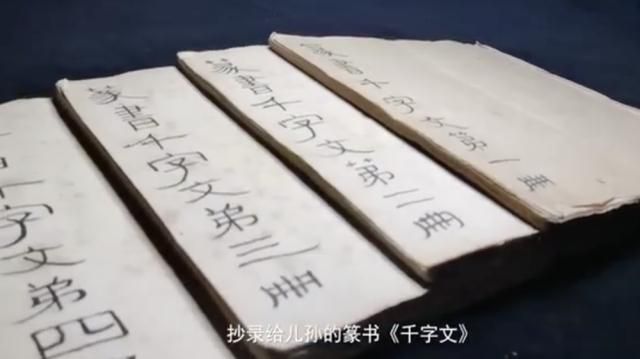 篆書千字文第一冊
篆書千字文第二冊
篆書千字文弟三冊
書千字文弟四
抄录给儿孙的篆书《千字文》